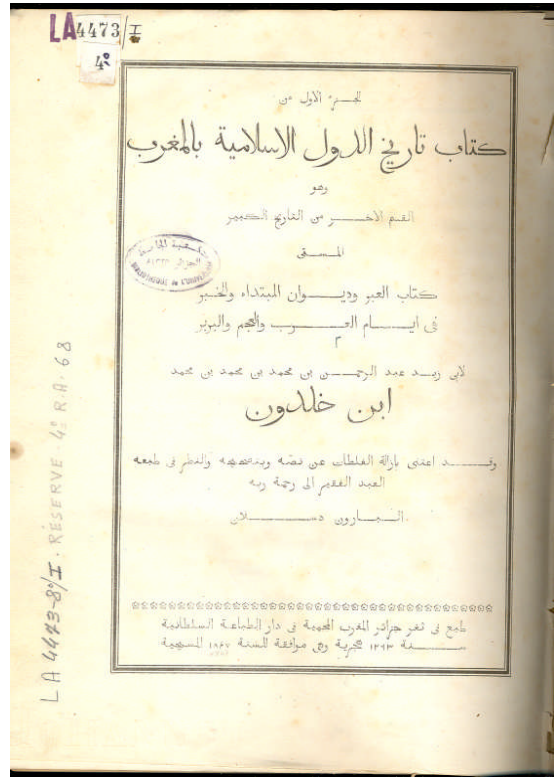 LA4473/I
4º
الجزء الاول من
كتاب تاريخ الدول الاسلامية بالمغرب
وهو
القسم الاخر من التاريخ الكبير
المسمى
كتاب العبر وديوان المبتداء والخبر
فى ايام العرب والعجم والبربر
لابى زيد عبد الرحمن بن محمد بن محمد بن محمد
ابن خلدون
وقد اعتنى بازالة الغلطات عن نصه وبتصحيحه والنظر فى طبعه
العبد الفقير الى رحمة ربه
البارون دسلان
طبع فى ثغر جزائر المغرب المحمية فى دار الطباعة السلطانية
سنة ١٢٦٣ هجرية وهى موافقة للسنة ١٨٤٧ المسيحية
LA 4473-8º/I. RÉSERVE - 4º R.A. 68